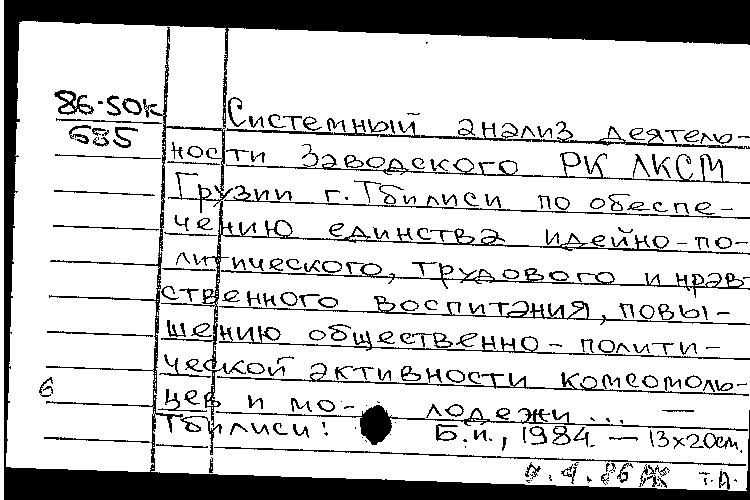 86-50к
685
Системный анализ деятель-
ности Заводского РК ЛКСМ
Грузии г. Тбилиси по обеспе-
чению единства идейно-по-
литического, трудового и нрав-
ственного воспитания, повы-
шению общественно-полити-
ческой активности комсомоль-
6
цев и мо- лодежи... —
Тбилиси: Б.и., 1984. — 13х20см.